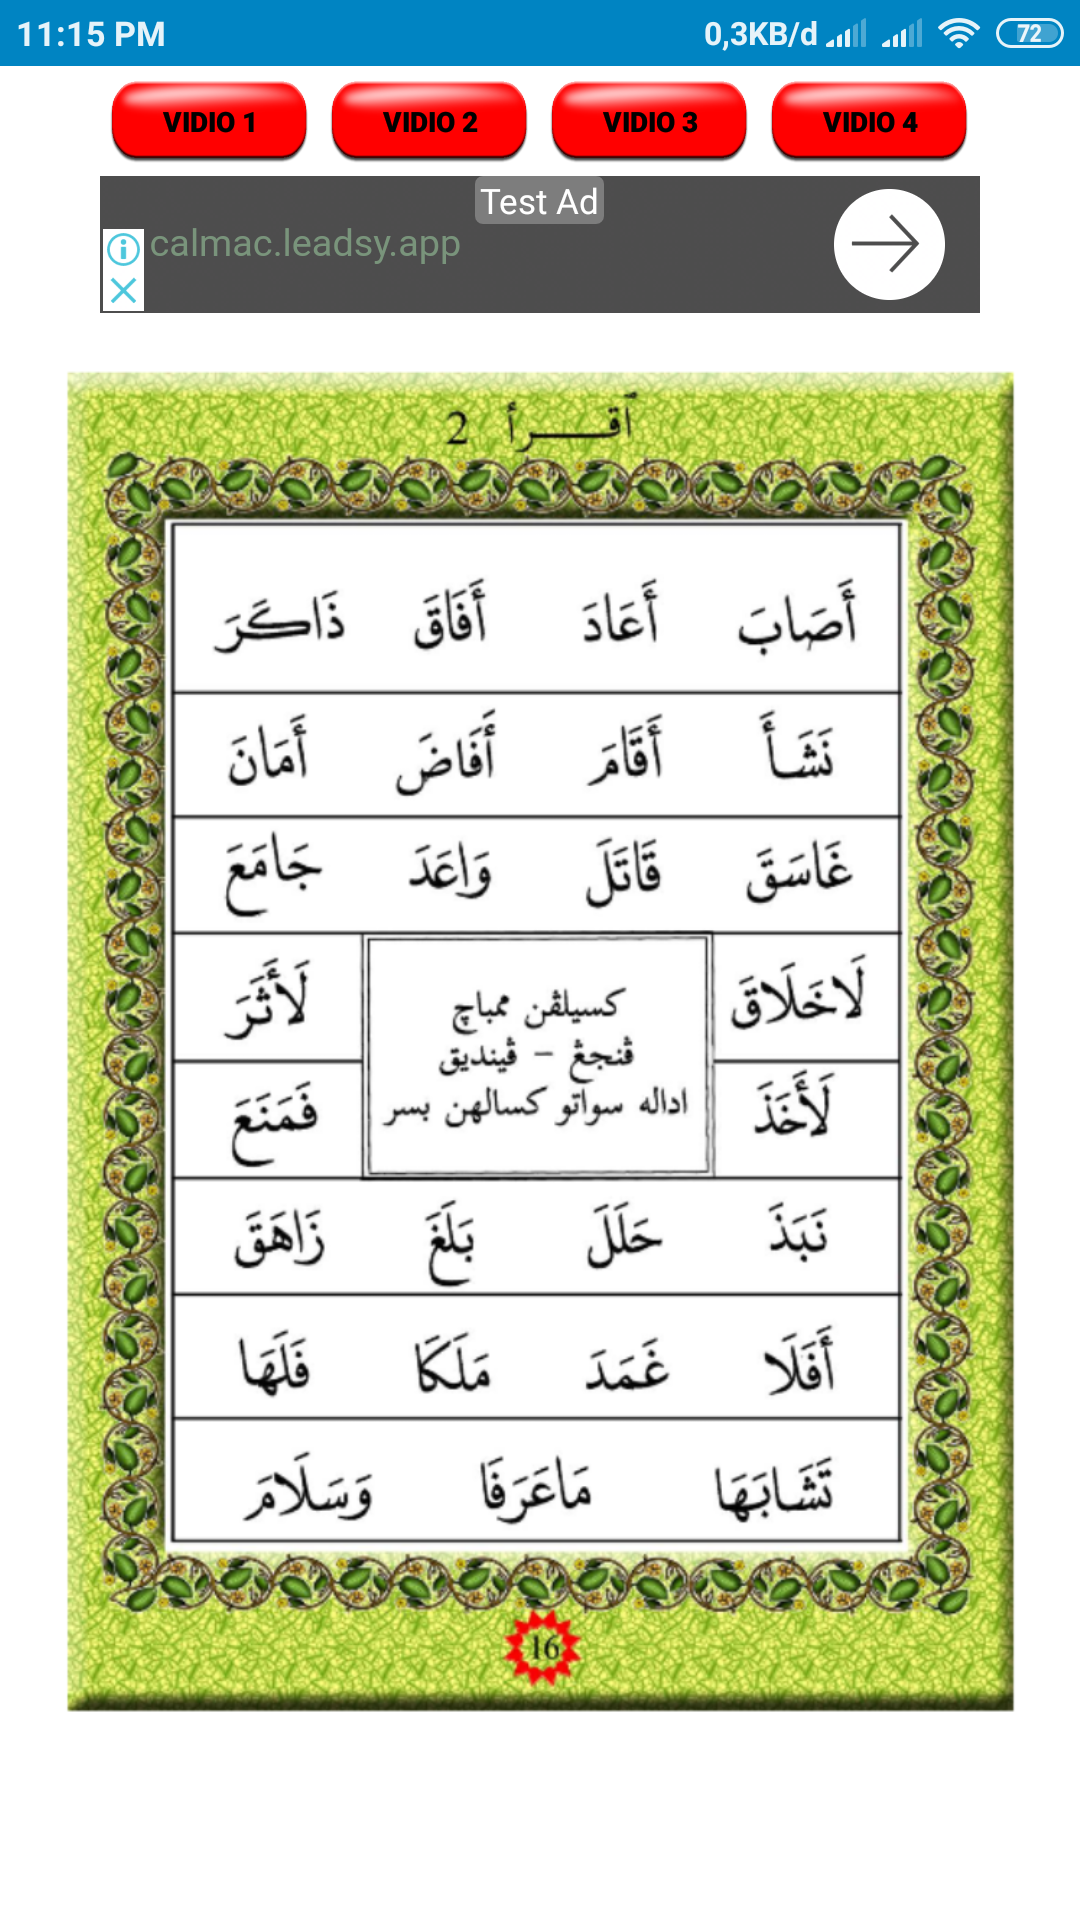 11:15 PM 0,3KB/d 72
VIDIO 1 VIDIO 2 VIDIO 3 VIDIO 4
Test Ad
calmac.leadsy.app
ٱقــرأ 2
أَصَابَ أَعَادَ أَفَاقَ ذَاكَرَ
نَشَأَ أَقَامَ أَفَاضَ أَمَانَ
غَاسَقَ قَاتَلَ وَاعَدَ جَامَعَ
لَاخَلَاقَ لَأَثَرَ
كسيلڤن ممباچ
ڤنجڠ – ڤينديق
اداله سواتو كسالهن بسر
لَأَخَذَ فَمَنَعَ
نَبَذَ حَلَلَ بَلَغَ زَاهَقَ
أَفَلَا غَمَدَ مَلَكَا فَلَهَا
تَشَابَهَا مَاعَرَفَا وَسَلَامَ
16